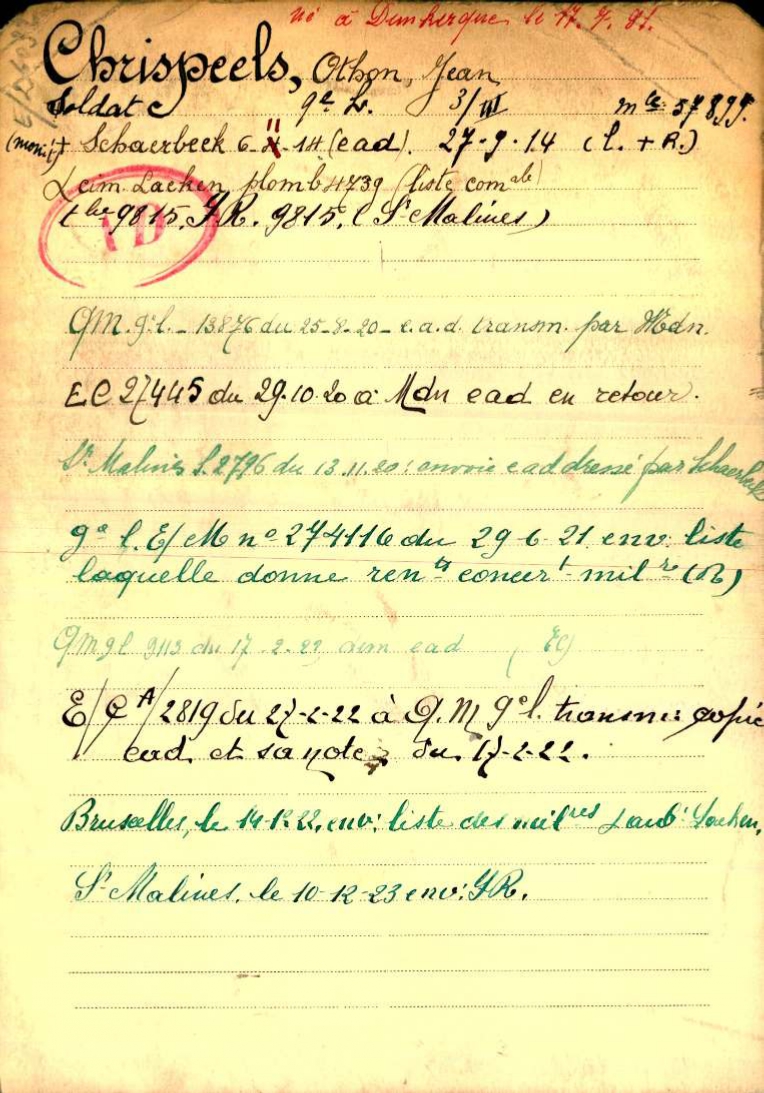 né à Dunkerque le 17.7.81.
Chrispeels, Othon, Jean
Soldat 9e L. 3/III mle 57899.
+ Schaerbeek 6-11-14 (ead). 27-9-14 (l. + R.)
Cim. Laeken plomb 4739 (liste comale)
9815. F.R. 9815. (St Malines)
QM. 9e l. - 13876 du 25-8-20 - e.a.d. transm. par Mdn.
EC 27445 du 29.10.20 à Mdn ead en retour.
St Malines S. 2796 du 13.11.20: envoie ead dressé par Schaerbeek
9e l. E/M no 274116 du 29-6-21 env: liste
laquelle donne rents concert milre (R)
QM 9 l 9113 du 17-2-22 dem ead (EC)
E/CA/2819 du 27-2-22 à Q.M 9e l. transm: copie
ead et sa note du 17-2-22.
Bruxelles, le 14-12-22, env: liste des milres Laeken.
St Malines. le 10-12-23 env: F.R.